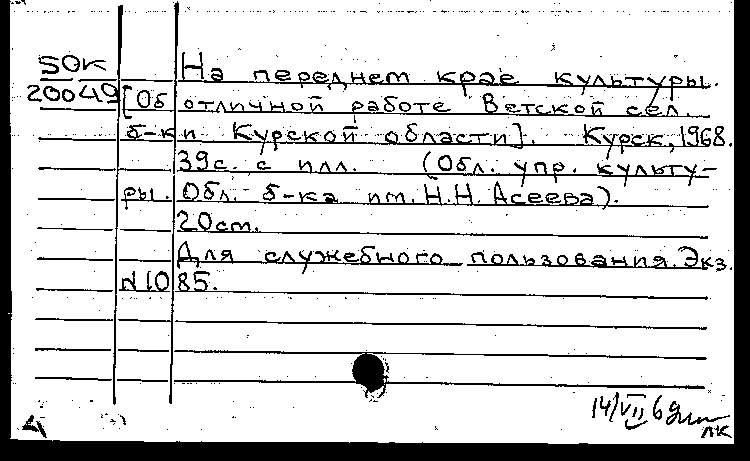 SOK
20049
На переднем крае культуры.
[Об отличной работе Ветской сел.
б-ки Курской области]. Курск, 1968.
39с. с илл. (Обл. упр. культу-
ры. Обл. б-ка им. Н.Н. Асеева).
20см.
Для служебного пользования. Экз.
N1085.
14/VII 69
ЛК